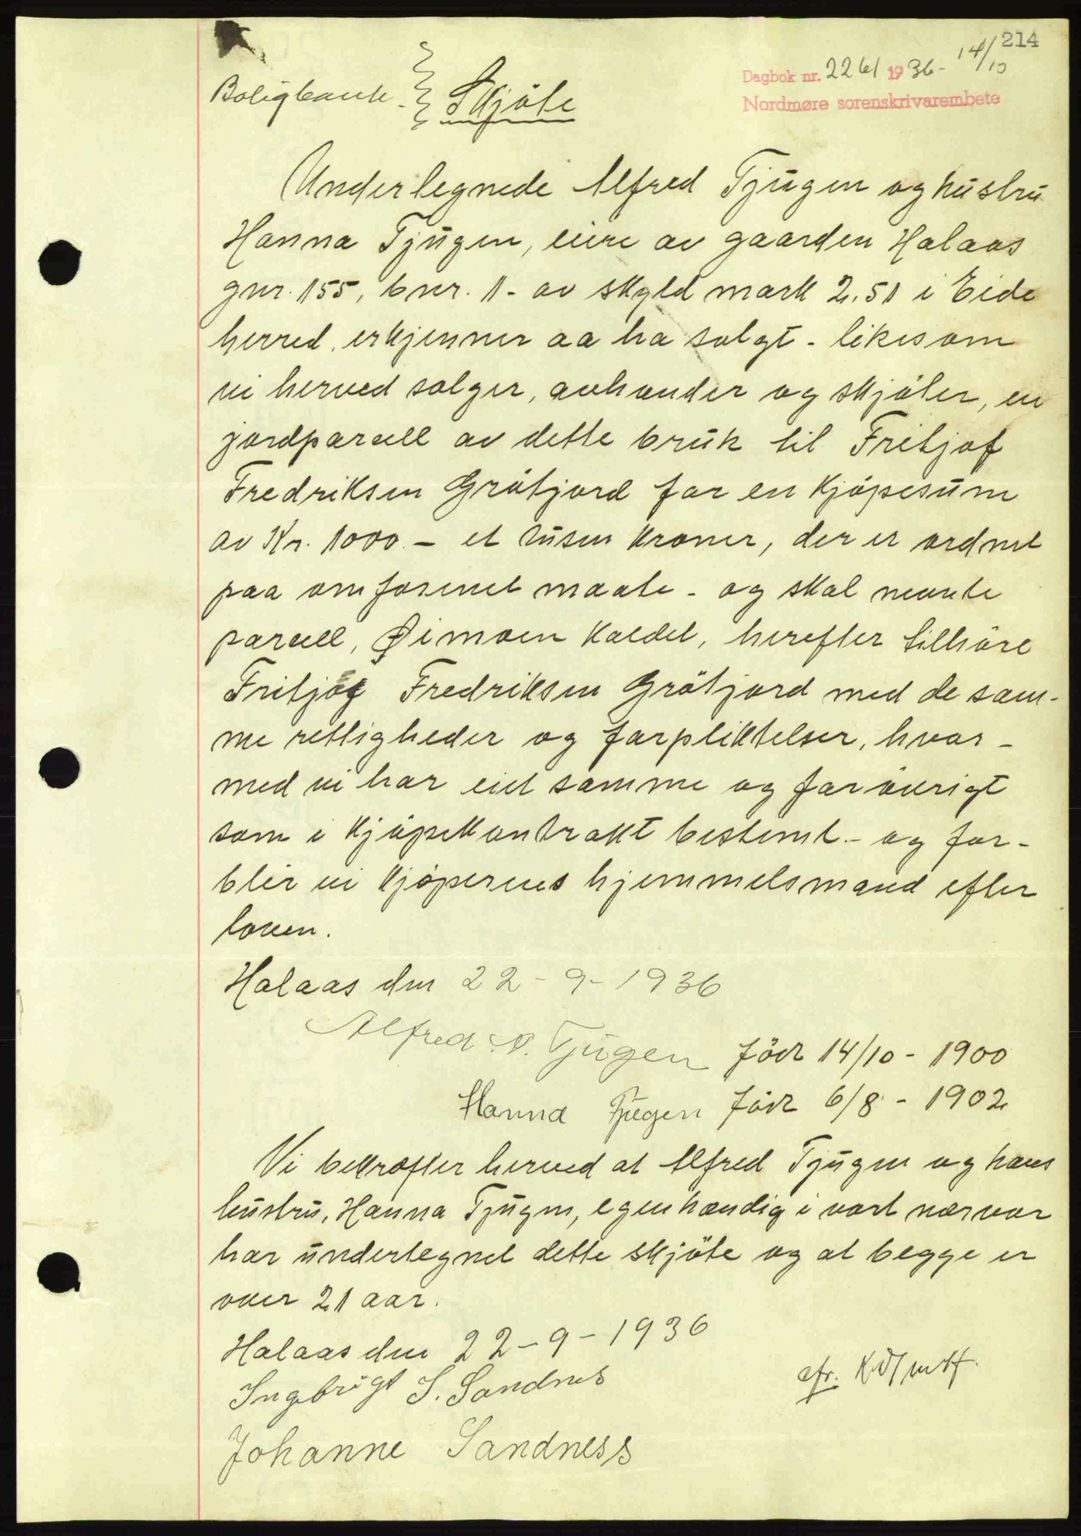 214
Dagbok nr. 2261 1936 - 14/10
Nordmøre sorenskrivarembete
Boligbank.
Skjöte
Undertegnede Alfred Tjugen og hustru
Hanna Tjugen, eiere av gaarden Halaas
gnr. 155, bnr. 1 - av skyld mark 2,51 i Eide
herred, erkjenner aa ha solgt - likesom
vi herved solger, avhænder og skjöter, en
jordparcell av dette bruk til Fritjof
Fredriksen Grötjord for en kjöpesum
av Kr. 1000 - et tusen kroner, der er ordnet
paa omforenet maate - og skal nevnte
parcell, Öimoen kaldet, herefter tilhöre
Fritjof Fredriksen Grötjord med de sam-
me rettigheder og forpliktelser, hvor-
med vi har eiet samme og forövrigt
som i kjöpekontrakt bestemt - og for-
blir vi kjöperens hjemmelsmand efter
loven.
Halaas den 22 - 9 - 1936
Alfred Tjugen född 14/10 - 1900
Hanna Tjugen född 6/8 - 1902
Vi bekræfter herved at Alfred Tjugen og hans
hustru, Hanna Tjugen, egenhændig i vort nærvær
har undertegnet dette skjöte og at begge er
over 21 aar.
Halaas den 22 - 9 - 1936
Ingebrigt S. Sandnes
Johanne Sandness